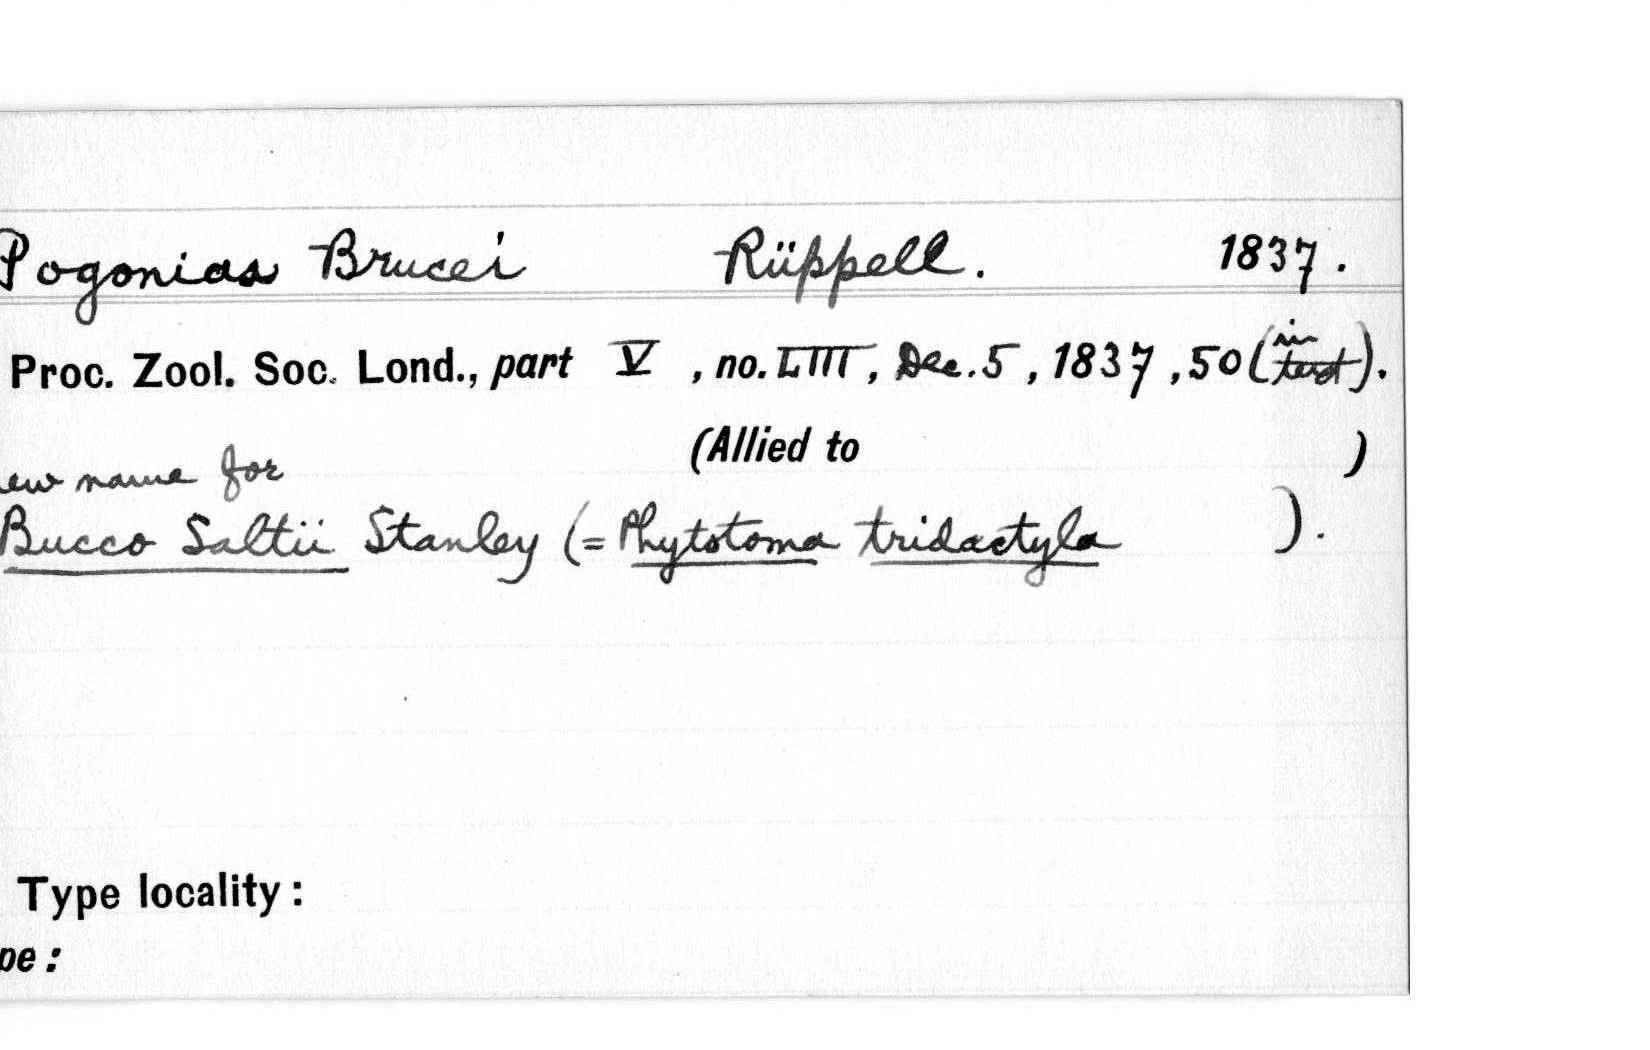 Pogonias Brucei Rüppell. 1837.
Proc. Zool. Soc. Lond., part V, no. LIII, Dec. 5, 1837, 50 (in text).
(Allied to )
ew name for
Bucco Saltii Stanley (= Phytotoma tridactyla ).
Type locality:
pe: